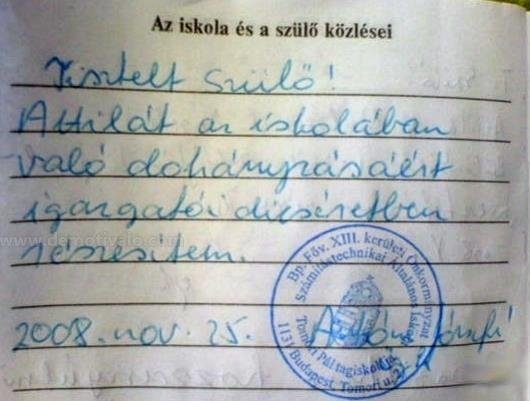 Az iskola és a szülő közlései
Tisztelt Szülő!
Attilát az iskolában
való dohányzásáért
igazgatói dicséretben
részesítem.
www.demotivalo.com
Bp. Főv. XIII. kerületi Önkormányzat
Számítástechnikai Általános Iskola
Tomori Pál tagiskolája
1131 Budapest, Tomori u.
2008. nov. 25.